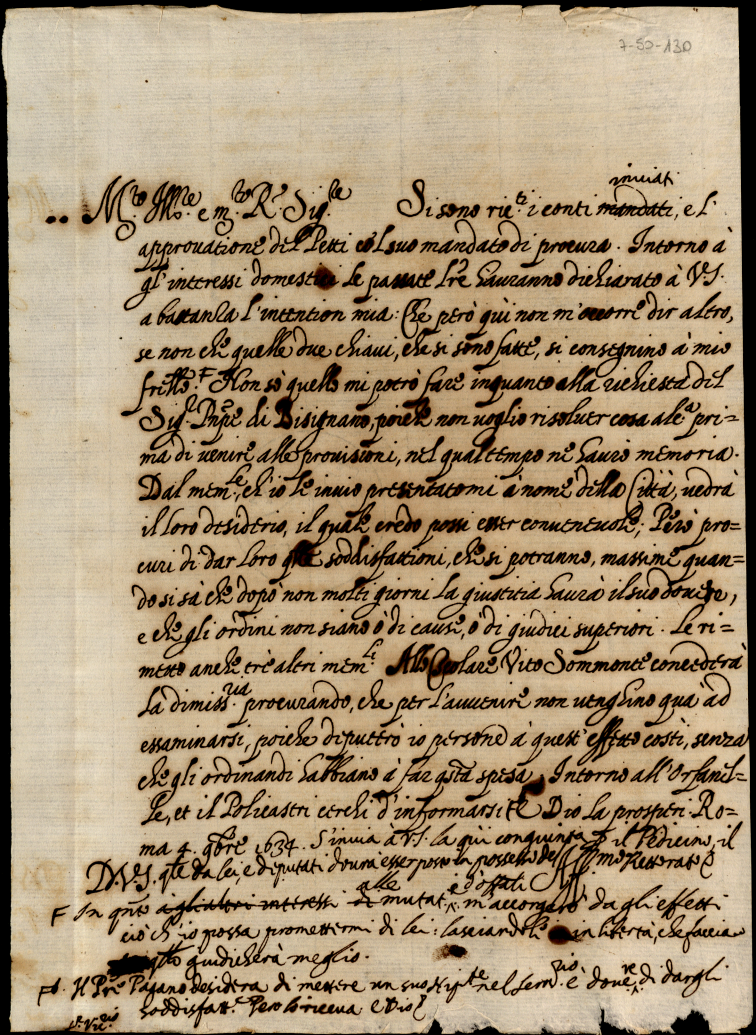 7-50-130
inviati
M.to Ill.re e m.to R.do Sig.re Si sono ric.ti i conti mandati, e l'
approvatione del Petti col suo mandato di procura. Intorno à
gl'interessi domestici le passate l're hauranno dichiarato à V.S.
a bastanza l'intention mia: Che però qui non m'occorre dir altro,
se non che quelle due chiavi, che si sono fatte, si consegnino à mio
fr'ello. F Non sò quello mi potrò fare inquanto alla richiesta del
Sig.r Pnpe di Bisignano, poiche non voglio risolver cosa alc.a pri=
ma di venire alle provisioni, nel qual tempo ne haurò memoria.
Dal mem.le, ch'io le invio presentatomi à nome della Città, vedrà
il loro desiderio, il quale credo possi esser convenevole; Però pro=
curi di dar loro q'lle soddisfattioni, che si potranno, massime quan=
do si sà che dopo non molti giorni la giustitia haurà il suo dovere,
e che gli ordini non siano ò di cause, ò di giudici superiori. Le ri=
metto anche trè altri mem.li Vito Sommonte concederà
la dimiss.ria procurando, che per l'avvenire non venghino qua ad
essaminarsi, poiche diputerò io persone à questi effetto costì, senza
che gli ordinandi habbiano à far q'sta spesa. Intorno all'Orfanel=
le, et il Policastri cerchi d'informarsi Dio la prosperi. Ro=
ma 4. 9bre 1634. S'invia à V.S. la qui congiunta il Pedicino, il
D. V.S. q'le da lei, e diputati dourà esser posto in possesso del
F In q'nto a gli altri interessi di alle mutat. m'accorgerò dagli effetti
ciò ch'io possa promettermi di lei: lasciandole in libertà, che faccia
q'llo giudicherà meglio.
Il Pre Pagano desidera di mettere un suo nip.te nel Sem.rio è dov.re di dargli
soddisfatt.e Però lo riceva e Dio